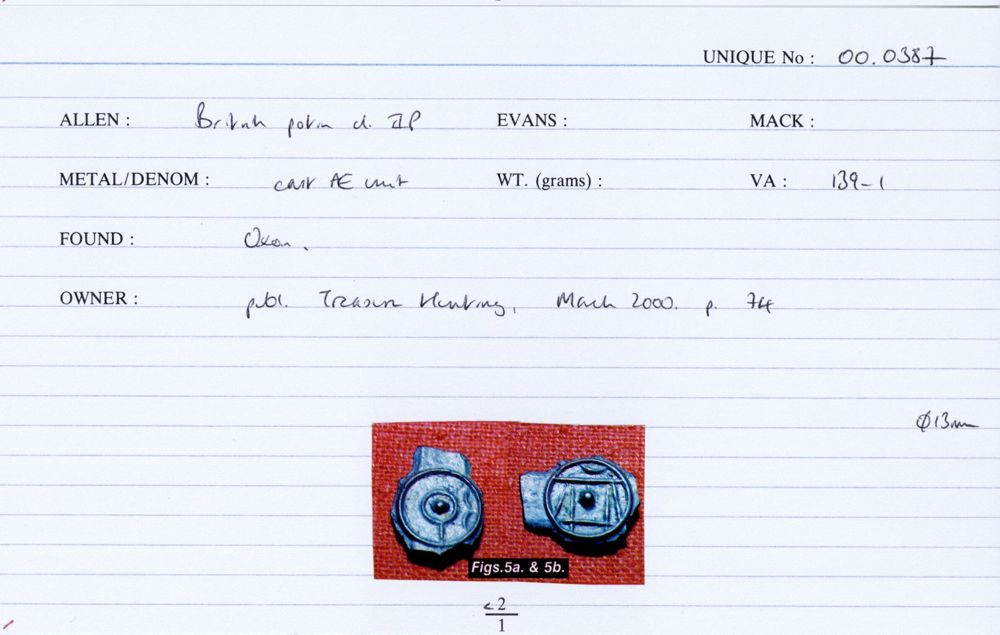 UNIQUE No : 00.0387
ALLEN : British potin cl. IIP EVANS : MACK :
METAL/DENOM : cast AE unit WT. (grams) : VA : 139-1
FOUND : Oxon.
OWNER : publ. Treasure Hunting, March 2000. p. 74
Ø13mm
Figs.5a. & 5b.
<2
1